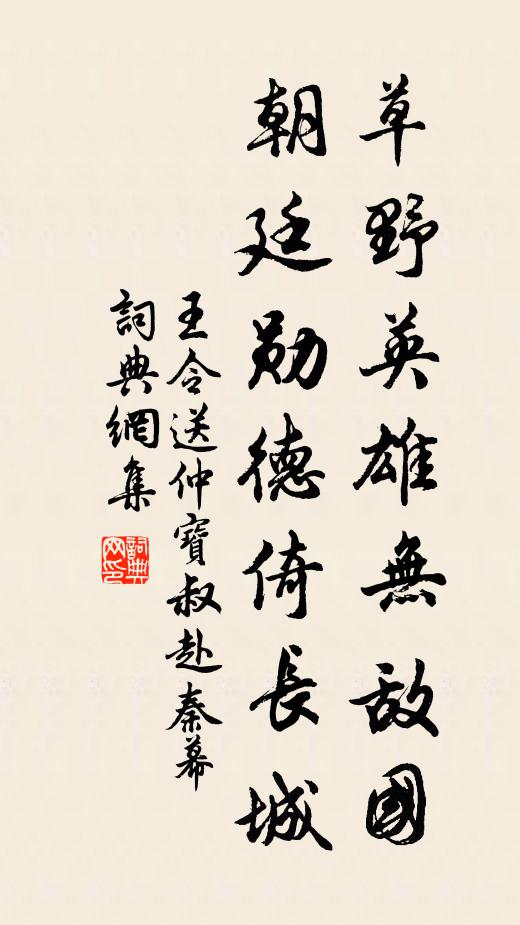 草野英雄無敌國
朝廷勛德倚長城
王令送仲寶叔赴秦幕
詞典網集
詞典网印